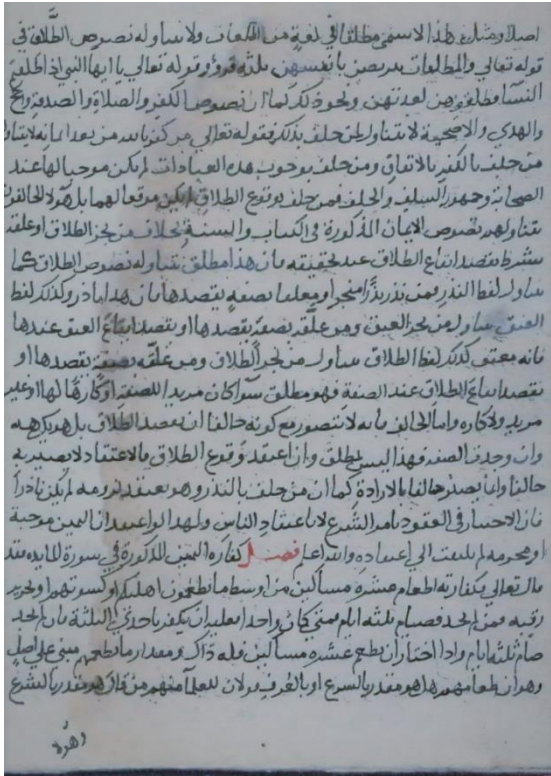 اصلا ومثل هذا لا يسمى مطلقا في لغة من اللغات ولا يتناوله نصوص الطلاق في
قوله تعالى والمطلقات يتربصن بانفسهن ثلثة قروء وقوله تعالى يا ايها النبي اذا طلقتم
النسآ فطلقوهن لعدتهن ونحو ذلك كما ان نصوص الكفر والصلاة والصدقة والحج
والهدي والاضحية لا يتناول لمن حلف بذلك فقوله تعالى من كفر بالله من بعد ايمانه لا يتناول
من حلف بالكفر بالاتفاق ومن حلف بوجوب هذه العبادات لم يكن موجبا لها عند
الصحابة وجمهور السلف والخلف فمن حلف بوقوع الطلاق لم يكن موقعا لهما بل هولا الحالفون
يتناولهم نصوص الايمان المذكورة في الكتاب والسنة بخلاف من نجز الطلاق او علقه
بشرط يقصد ايقاع الطلاق عند تحقيقه فان هذا مطلق يتناوله نصوص الطلاق كما
يتناول لفظ النذر فمن نذر نذرا منجزا او معلقا بصفة يقصدها فان هذا ناذر وكذلك لفظ
العتق يتناول من نجز العتق ومن علقه بصفة يقصدها او يقصد ايقاع العتق عندها
فانه معتق كذلك لفظ الطلاق يتناول من نجز الطلاق ومن علقه بصفة يقصدها او
يقصد ايقاع الطلاق عند الصفة فهو مطلق سوآ كان مريدا للصفة او كارها لها او غير
مريد ولا كاره واما الحالف فانه لا يتصور مع كونه حالفا ان يقصد الطلاق بل هو يكرهه
وان وجدت الصفة فهذا ليس بمطلق وان اعتقد وقوع الطلاق فالاعتقاد لا يصير به
حالفا وانما يصير حالفا بالارادة كما ان من حلف بالنذر وهو يعتقد لزومه لم يكن ناذرا
فان الاعتبار في العقود بامر الشرع لا باعتقاد الناس ولهذا لو اعتقد ان اليمين موجبة
او محرمة لم يلتفت الى اعتقاده والله اعلم فصل كفارة اليمين المذكورة في سورة المايدة فقد
قال تعالى فكفارته اطعام عشرة مساكين من اوسط ما تطعمون اهليكم او كسوتهم او تحرير
رقبة فمن لم يجد فصيام ثلثة ايام فمتى كان واجدا فعليه ان يكفر باحدى الثلثة فان لم يجد
صام ثلثة ايام واذا اختار ان يطعم عشرة مساكين فله ذاك ومقدار ما يطعمهم مبني على اصل
وهو ان طعامهم هل هو مقدر بالشرع او بالعرف قولان للعلمآ منهم من قال هو مقدر بالشرع
وهولا